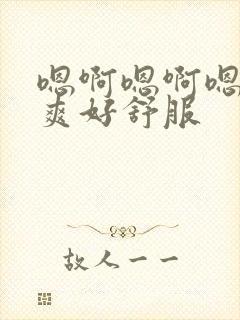 嗯啊嗯啊嗯
爽好舒服
故人一一